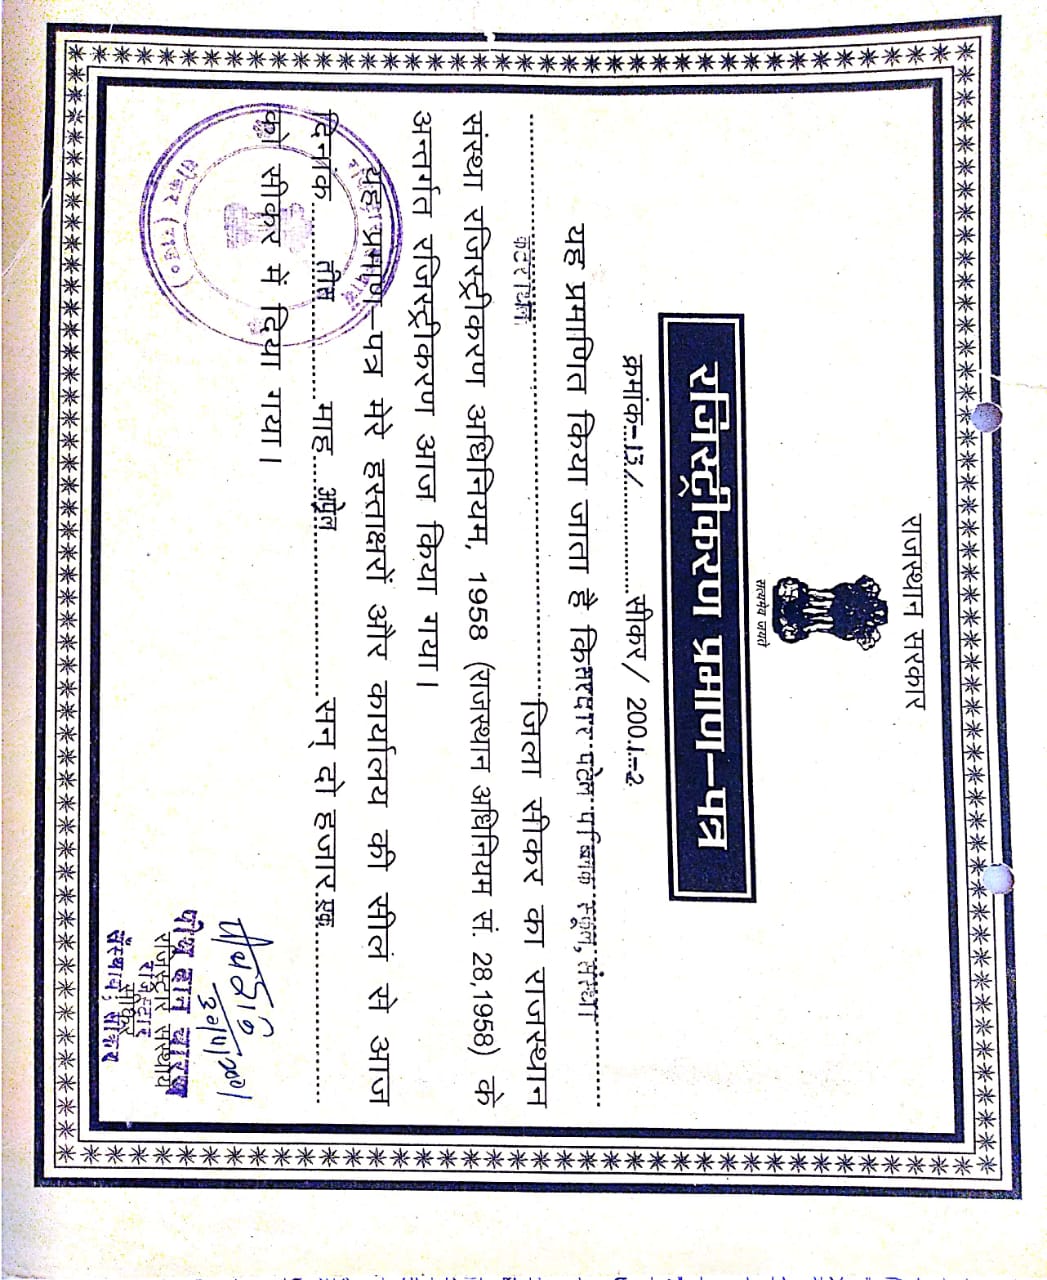 राजस्थान सरकार
सत्यमेव जयते
रजिस्ट्रीकरण प्रमाण–पत्र
क्रमांक-13/..................सीकर/ 2001-2
यह प्रमाणित किया जाता है कि सरदार पटेल पब्लिक स्कूल, संस्था
कटराथल जिला सीकर का राजस्थान
संस्था रजिस्ट्रीकरण अधिनियम, 1958 (राजस्थान अधिनियम सं. 28,1958) के
अन्तर्गत रजिस्ट्रीकरण आज किया गया।
यह प्रमाण–पत्र मेरे हस्ताक्षरों और कार्यालय की सील से आज
दिनांक.....तीस.....माह...अप्रेल.....सन् दो हजार.एक.....
को सीकर में दिया गया।
सीकर (राज०)
30/4/2001
पीथ दान चारण
रजिस्ट्रार संस्थायें
रजिस्टार
सीकर
संस्थायें, सीकर